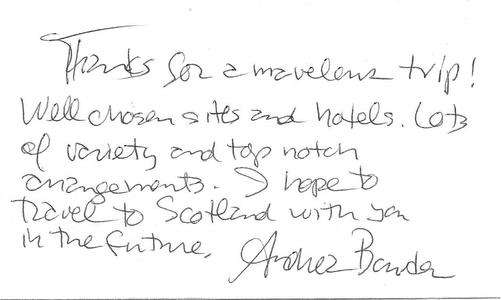 Thanks for a mavelous trip!
Well chosen sites and hotels. Lots
of variety and top notch
arrangements. I hope to
travel to Scotland with you
in the future.